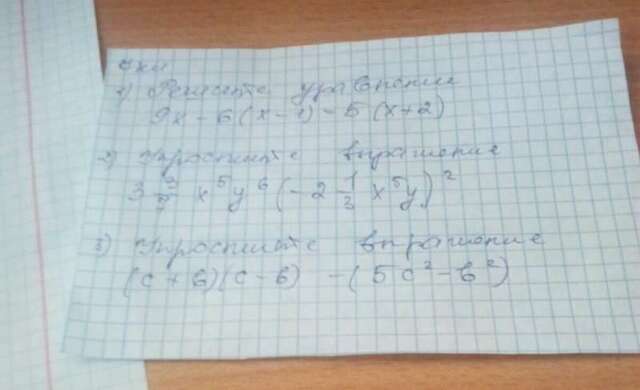 1) Решите уравнение
9x - 6(x-1) = 5(x+2)
2) Упростите выражение
3 3/7 x⁵y⁶ (-2 1/3 x⁵y)²
3) Упростите выражение
(c+b)(c-b) - (5c²-b²)